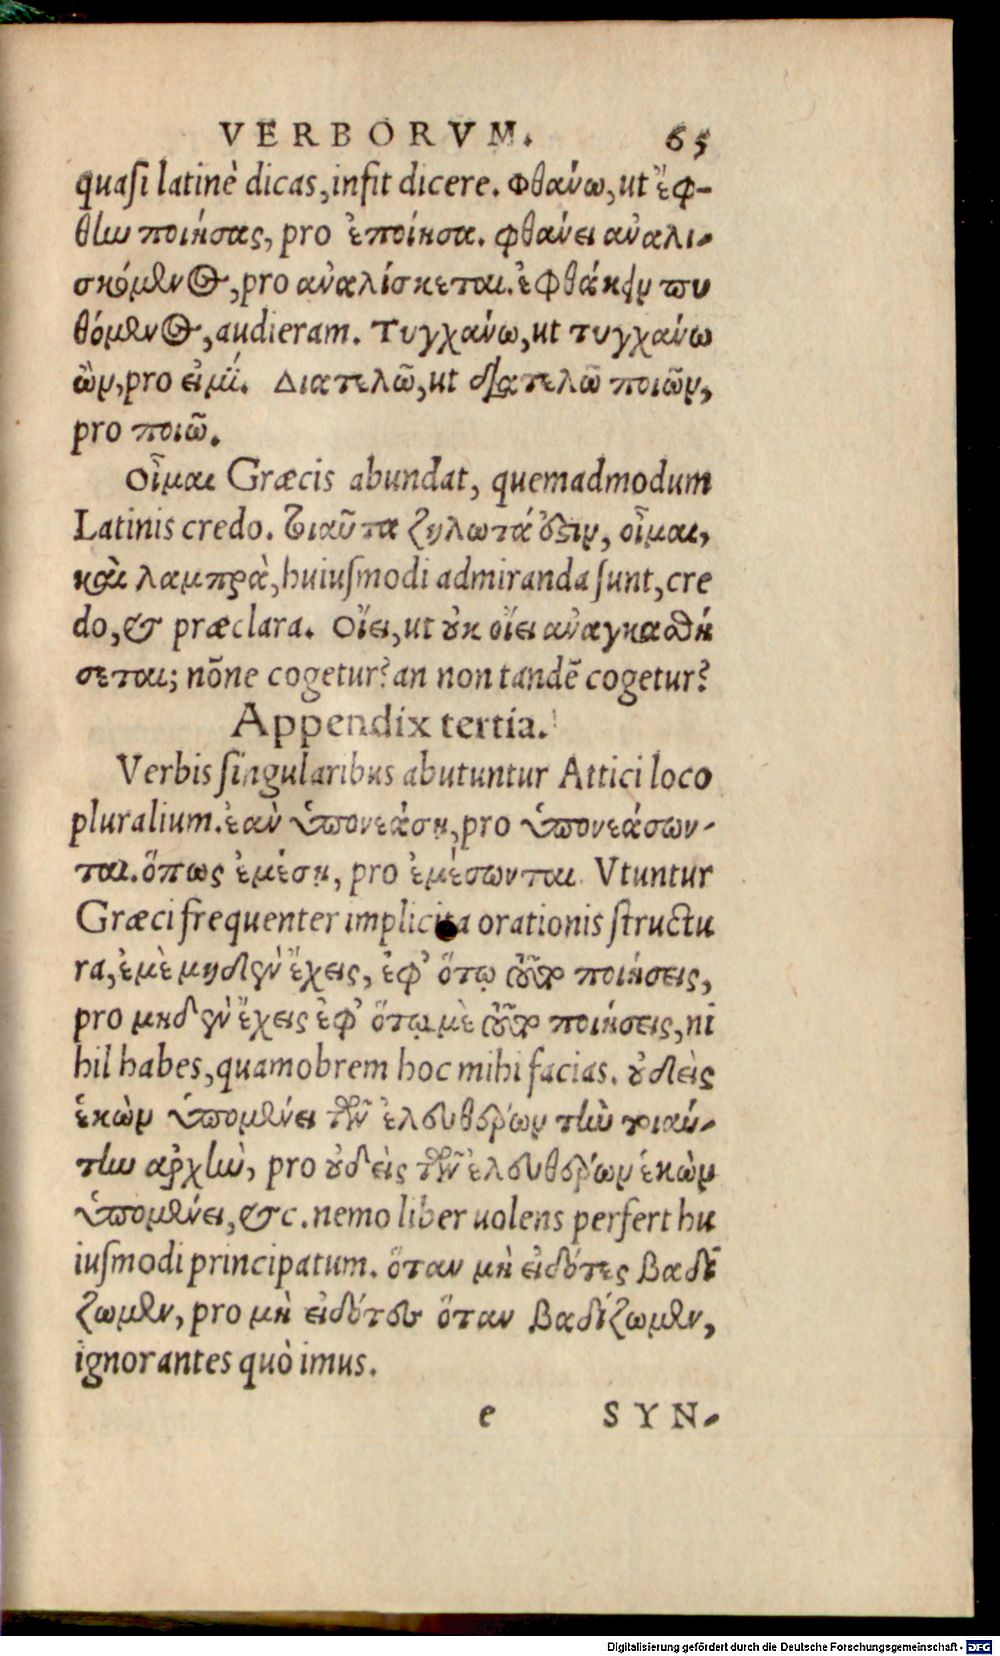 VERBORVM. 65
quasi latinè dicas, infit dicere. Φθάνω, ut ἔφ-
θην ποιήσας, pro ἐποίησα. φθάνει ἀναλι-
σκόμενος, pro ἀναλίσκεται. ἐφθάκειν πυ
θόμενος, audieram. Τυγχάνω, ut τυγχάνω
ὢν, pro εἰμί. Διατελῶ, ut διατελῶ ποιῶν,
pro ποιῶ.
Οἶμαι Græcis abundat, quemadmodum
Latinis credo. τοιαῦτα ζηλωτά ὅστιν, οἶμαι,
καὶ λαμπρὰ, huiusmodi admiranda sunt, cre
do, & præclara. Οἴει, ut οὐκ οἴει ἀναγκασθή
σεται; nõne cogetur? an non tandẽ cogetur?
Appendix tertia.
Verbis singularibus abutuntur Attici loco
pluralium. ἐὰν ὑπονεάσῃ, pro ὑπονεάσων-
ται. ὅπως ἐμέσῃ, pro ἐμέσωνται. Vtuntur
Græci frequenter implicita orationis structu
ra, ἐμὲ μηδὲν ἔχεις, ἐφ' ὅτῳ τοῦτο ποιήσεις,
pro μηδὲν ἔχεις ἐφ' ὅτῳ μὲ τοῦτο ποιήσεις, ni
hil habes, quamobrem hoc mihi facias. οὐδεὶς
ἑκὼν ὑπομένει τῶν ἐλευθέρων τὴν τοιαύ-
την ἀρχὴν, pro οὐδεὶς τῶν ἐλευθέρων ἑκὼν
ὑπομένει, &c. nemo liber uolens perfert hu
iusmodi principatum. ὅταν μὴ εἰδότες βαδί
ζωμεν, pro μὴ εἰδότες ὅταν βαδίζωμεν,
ignorantes quò imus.
e SYN-
Digitalisierung gefördert durch die Deutsche Forschungsgemeinschaft - DFG